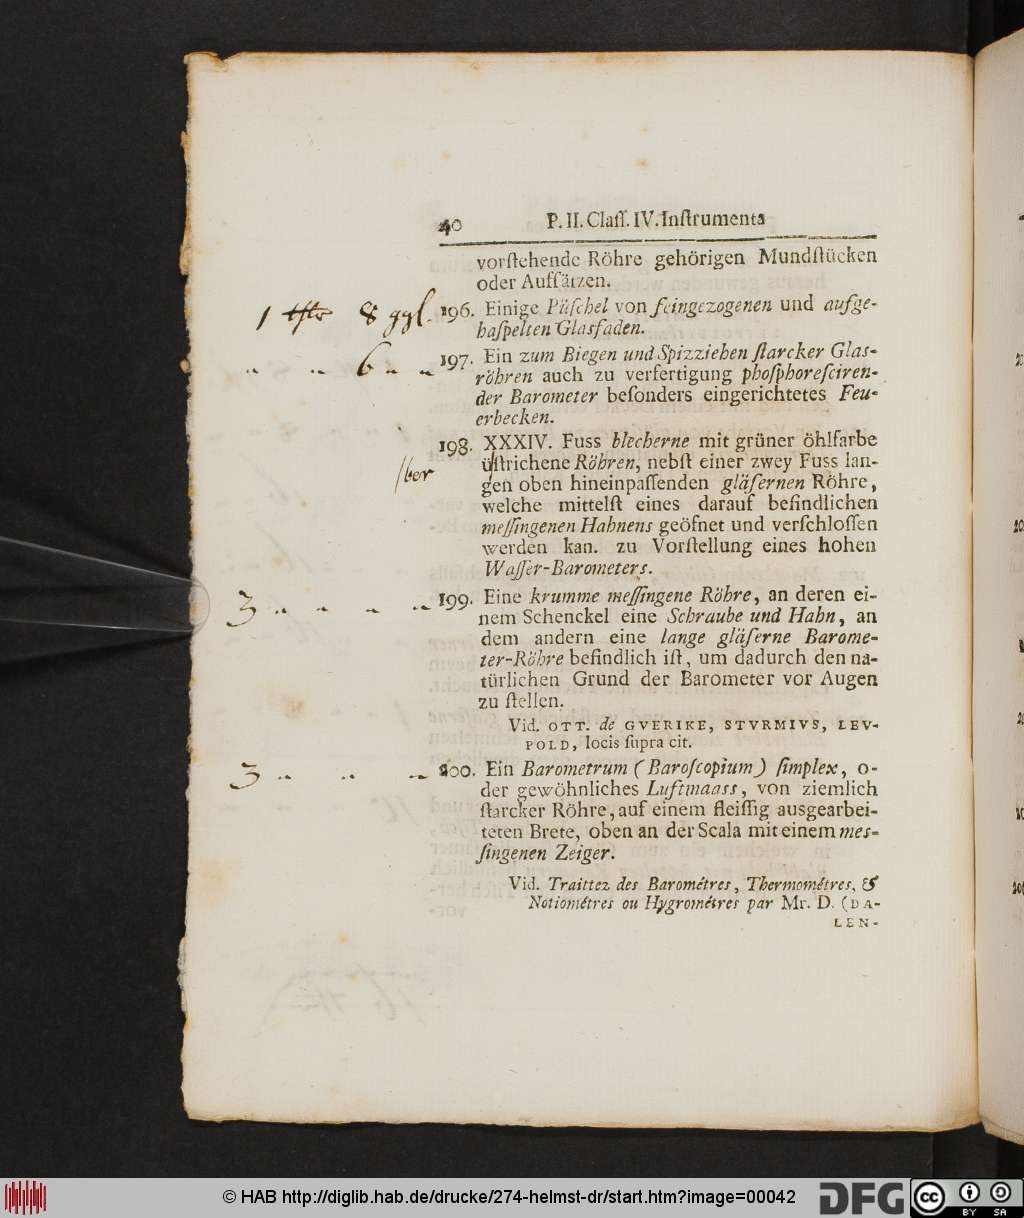 40 P. II. Claſſ. IV. Inſtrumenta
vorſtehende Röhre gehörigen Mundſtücken
oder Aufſätzen.
1 8 ggl. 196. Einige Püſchel von feingezogenen und aufge-
haſpelten Glasfaden.
" " 6 " " 197. Ein zum Biegen und Spizziehen ſtarcker Glas-
röhren auch zu verfertigung phoſphoreſciren-
der Barometer beſonders eingerichtetes Feu-
erbecken.
198. XXXIV. Fuss blecherne mit grüner öhlfarbe
/ber üſtrichene Röhren, nebſt einer zwey Fuss lan-
gen oben hineinpaſſenden gläſernen Röhre,
welche mittelſt eines darauf befindlichen
meſſingenen Hahnens geöfnet und verſchloſſen
werden kan. zu Vorſtellung eines hohen
Waſſer-Barometers.
3 " " " " 199. Eine krumme meſſingene Röhre, an deren ei-
nem Schenckel eine Schraube und Hahn, an
dem andern eine lange gläſerne Barome-
ter-Röhre befindlich iſt, um dadurch den na-
türlichen Grund der Barometer vor Augen
zu ſtellen.
Vid. OTT. de GVERIKE, STVRMIVS, LEV-
POLD, locis ſupra cit.
3 " " " 200. Ein Barometrum (Baroſcopium) ſimplex, o-
der gewöhnliches Luftmaass, von ziemlich
ſtarcker Röhre, auf einem fleiſſig ausgearbei-
teten Brete, oben an der Scala mit einem meſ-
ſingenen Zeiger.
Vid. Traittez des Barométres, Thermométres, &
Notiométres ou Hygrométres par Mr. D. (DA-
LEN-
© HAB http://diglib.hab.de/drucke/274-helmst-dr/start.htm?image=00042
DFG
cc BY SA